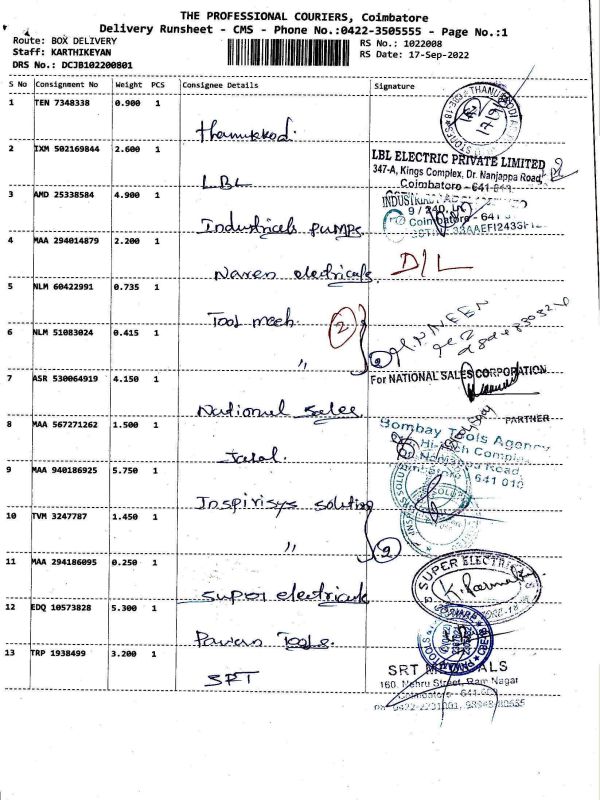 THE PROFESSIONAL COURIERS, Coimbatore
Delivery Runsheet - CMS - Phone No.:0422-3505555 - Page No.:1
Route: BOX DELIVERY
Staff: KARTHIKEYAN
DRS No.: DCJB102200801
RS No.: 1022008
RS Date: 17-Sep-2022
S No Consignment No Weight PCS Consignee Details Signature
1 TEN 7348338 0.900 1
Thanushkodi
2 IXM 502169844 2.600 1
LBL
LBL ELECTRIC PRIVATE LIMITED
347-A, Kings Complex, Dr. Nanjappa Road,
Coimbatore - 641
3 AMD 25338584 4.900 1
Industricals pumps
4 MAA 294014879 2.200 1
Naren electricals
D/L
5 NLM 60422991 0.735 1
Tool mech.
2
6 NLM 51083024 0.415 1
"
7 ASR 530064919 4.150 1
National sales
For NATIONAL SALES CORPORATION
PARTNER
8 MAA 567271262 1.500 1
Bombay Tools Agency
Hi-Tech Complex
Dr. Nanjappa Road
Coimbatore 641 018
9 MAA 940186925 5.750 1
Inspirisys solution
10 TVM 3247787 1.450 1
"
2
11 MAA 294186095 0.250 1
super electricals
SUPER ELECTRICALS
12 EDQ 10573828 5.300 1
Pawan Tools
13 TRP 1938499 3.200 1
SRT
SRT
160, Nehru Street, Ram Nagar
Coimbatore - 641